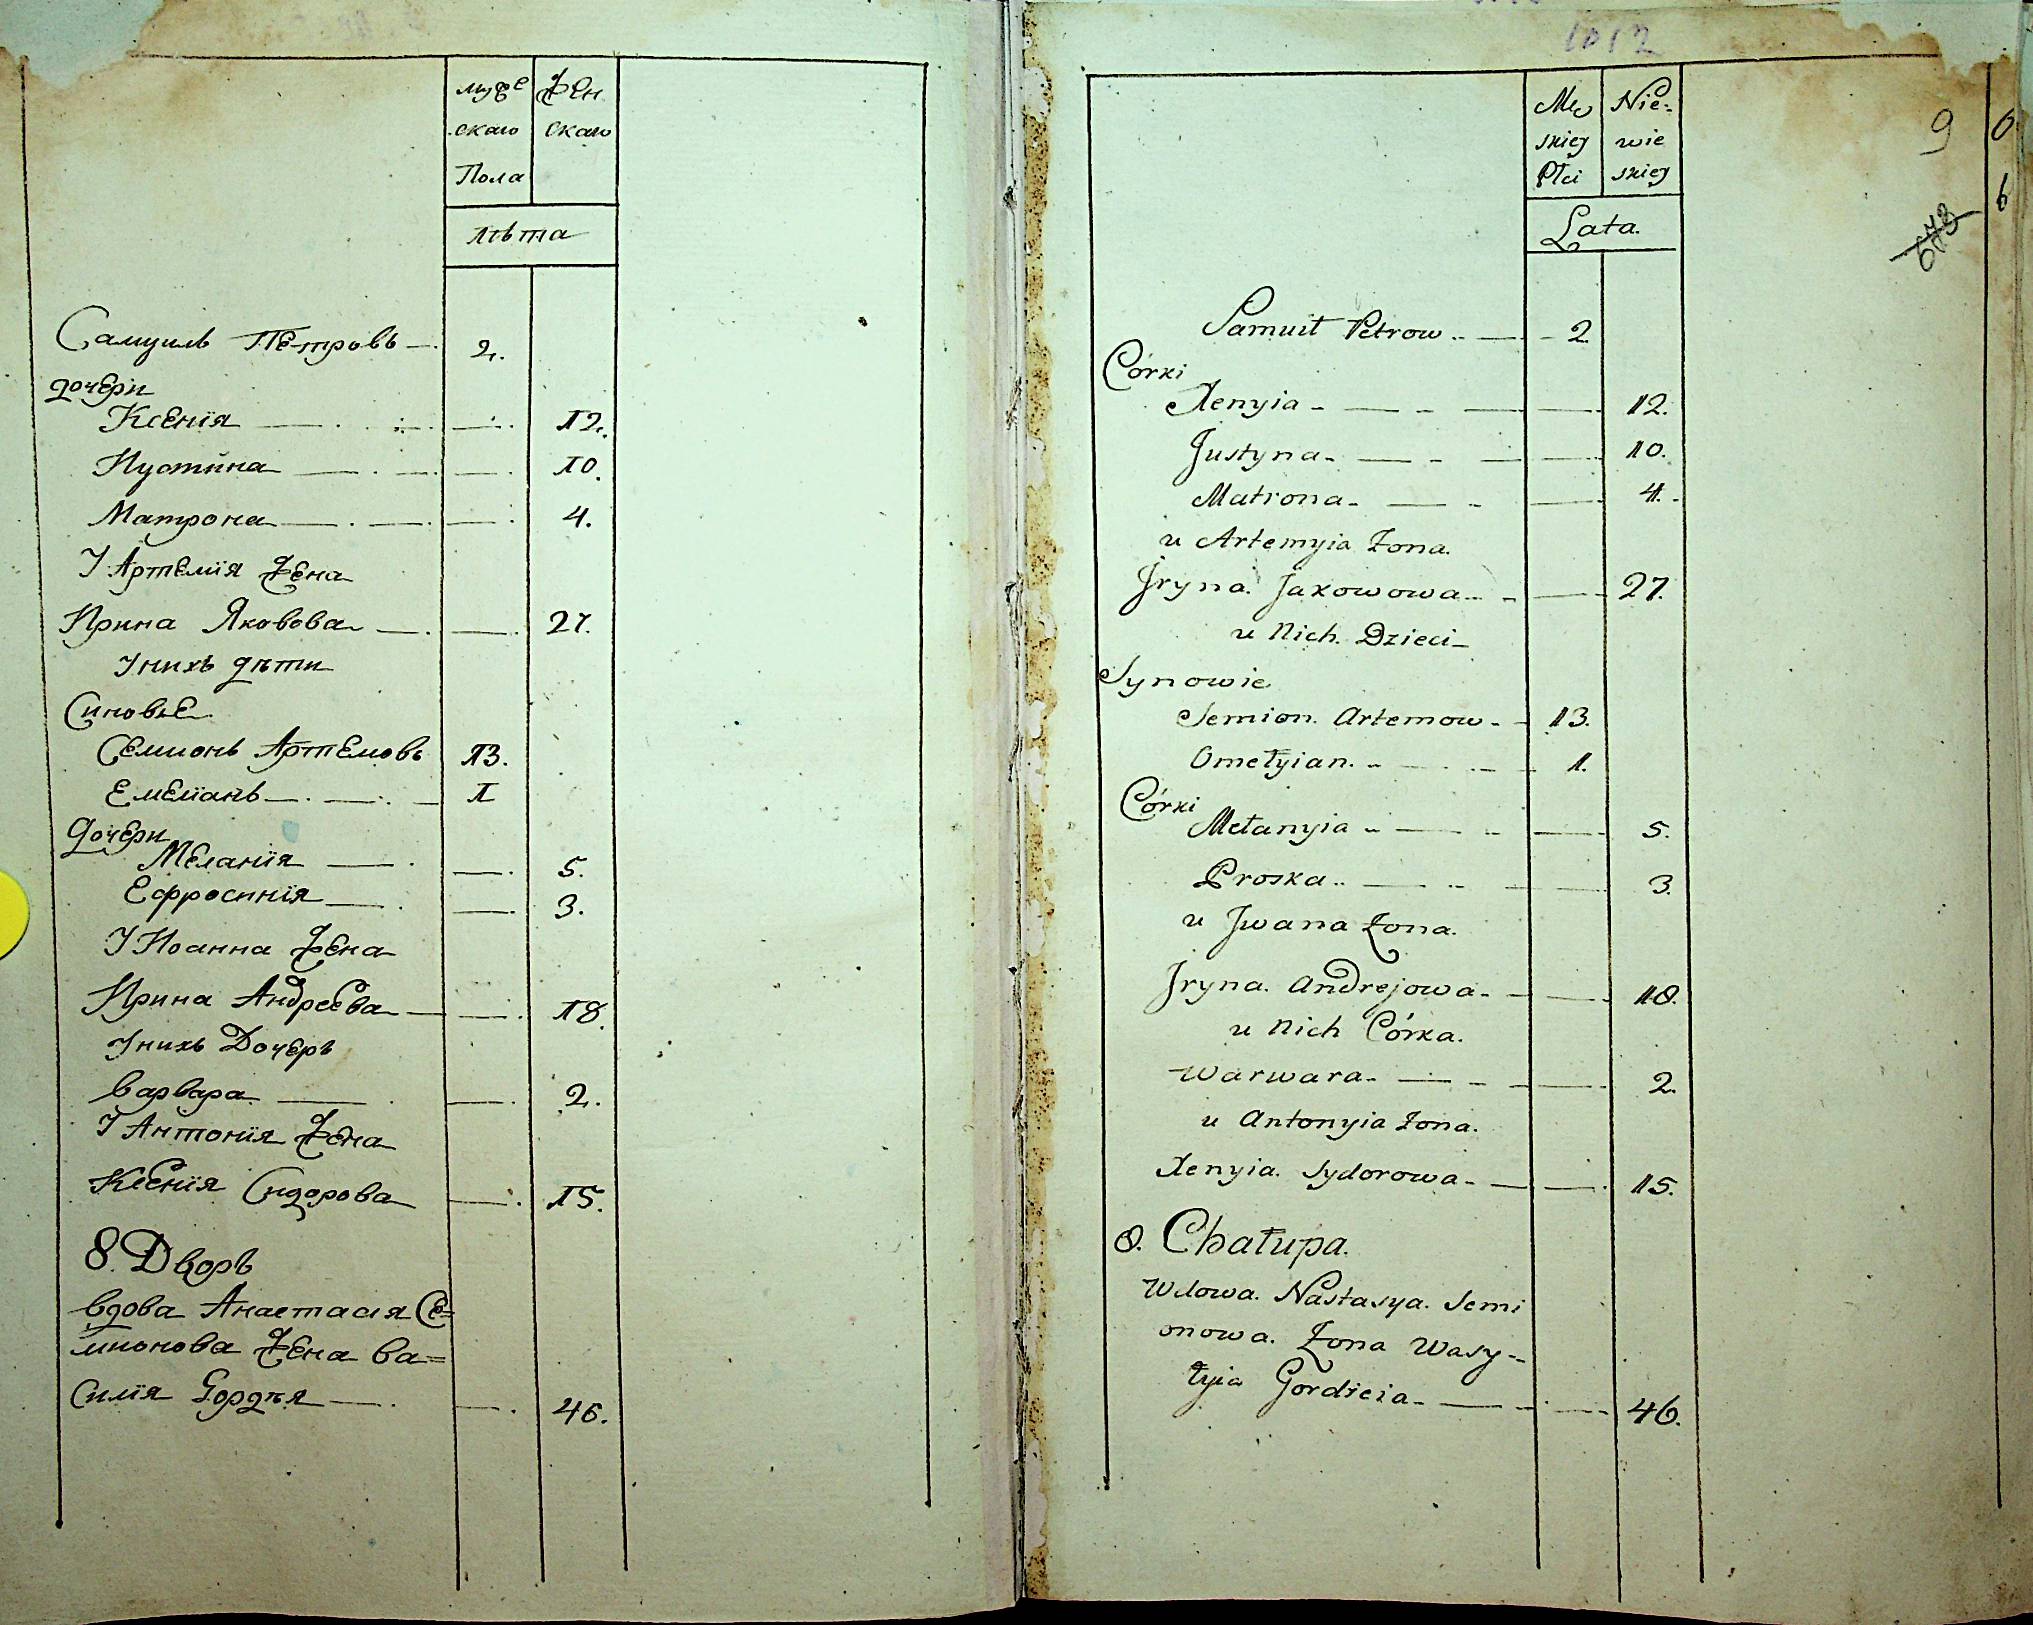 мужескаго Пола
Женскаго
лѣта
Самуилъ Петровъ 2.
дочери
Ксенія 12.
Иустина 10.
Матрона 4.
У Артемія Жена
Ирина Яковова 27.
У нихъ дѣти
Синовье
Семионъ Артемовъ 13.
Емелианъ 1
Дочери
Меланія 5.
Ефросинія 3.
У Иоанна Жена
Ирина Андреева 18.
У нихъ Дочерь
Варвара 2.
У Антонія Жена
Ксенія Сидорова 15.
8. Дворъ
Вдова Анастасія Се=
мионова Жена Ва=
силія Гордѣя 46.
1012
Męskiej Płci
Niewieskiej
Lata.
9
673
Samuił Petrow 2
Córki
Xenyia 12.
Justyna 10.
Matrona 4.
u Artemyia Żona.
Jryna. Jakowowa 27.
u Nich. Dzieci
Synowie
Semion. Artemow 13.
Omełyian. 1.
Córki
Mełanyia 5.
Proska 3.
u Jwana Żona.
Jryna. Andrejowa 18.
u Nich Córka.
Warwara 2.
u Antonyia Żona.
Xenyia. Sydorowa 15.
8. Chałupa.
Wdowa. Nastasya. Semi
onowa. Żona Wasy-
łyia Gordieia 46.
0
6